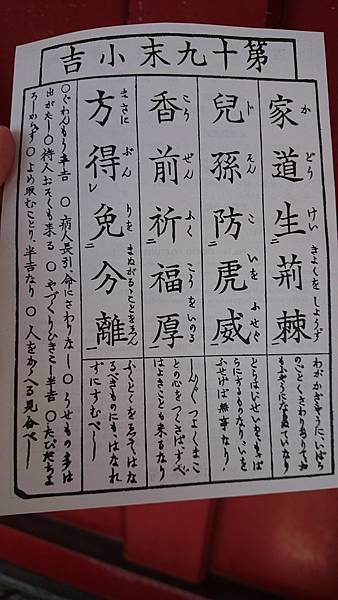 第十九末小吉
家道生荊棘
か どう けい きよくをしようず
わがかぎやうにいばら
のごとくさわりありてお
もふやうにならぬていなり
兒孫防虎威
じ そん こ いを ふせぐ
ふせげば無事なり
香前祈福厚
こう ぜん ふく こうをいのる
しんじんつよくまこ
との心をつくさば、すべ
てよきことも来るなり
方得免分離
まさに ぶん りを まぬがるゝことをえん
ふくとくをえてはな
るべきものにもはなれ
ずにすむべし
○ぐわんもう半吉 ○病人長引、命にさわりなし ○うせもの多は
出がたし ○待人おそくも来る ○やづくりひきこし半吉 ○たびだちよ
ろしからず ○よめ取むことり、半吉なり ○人をかゝへる見合べし